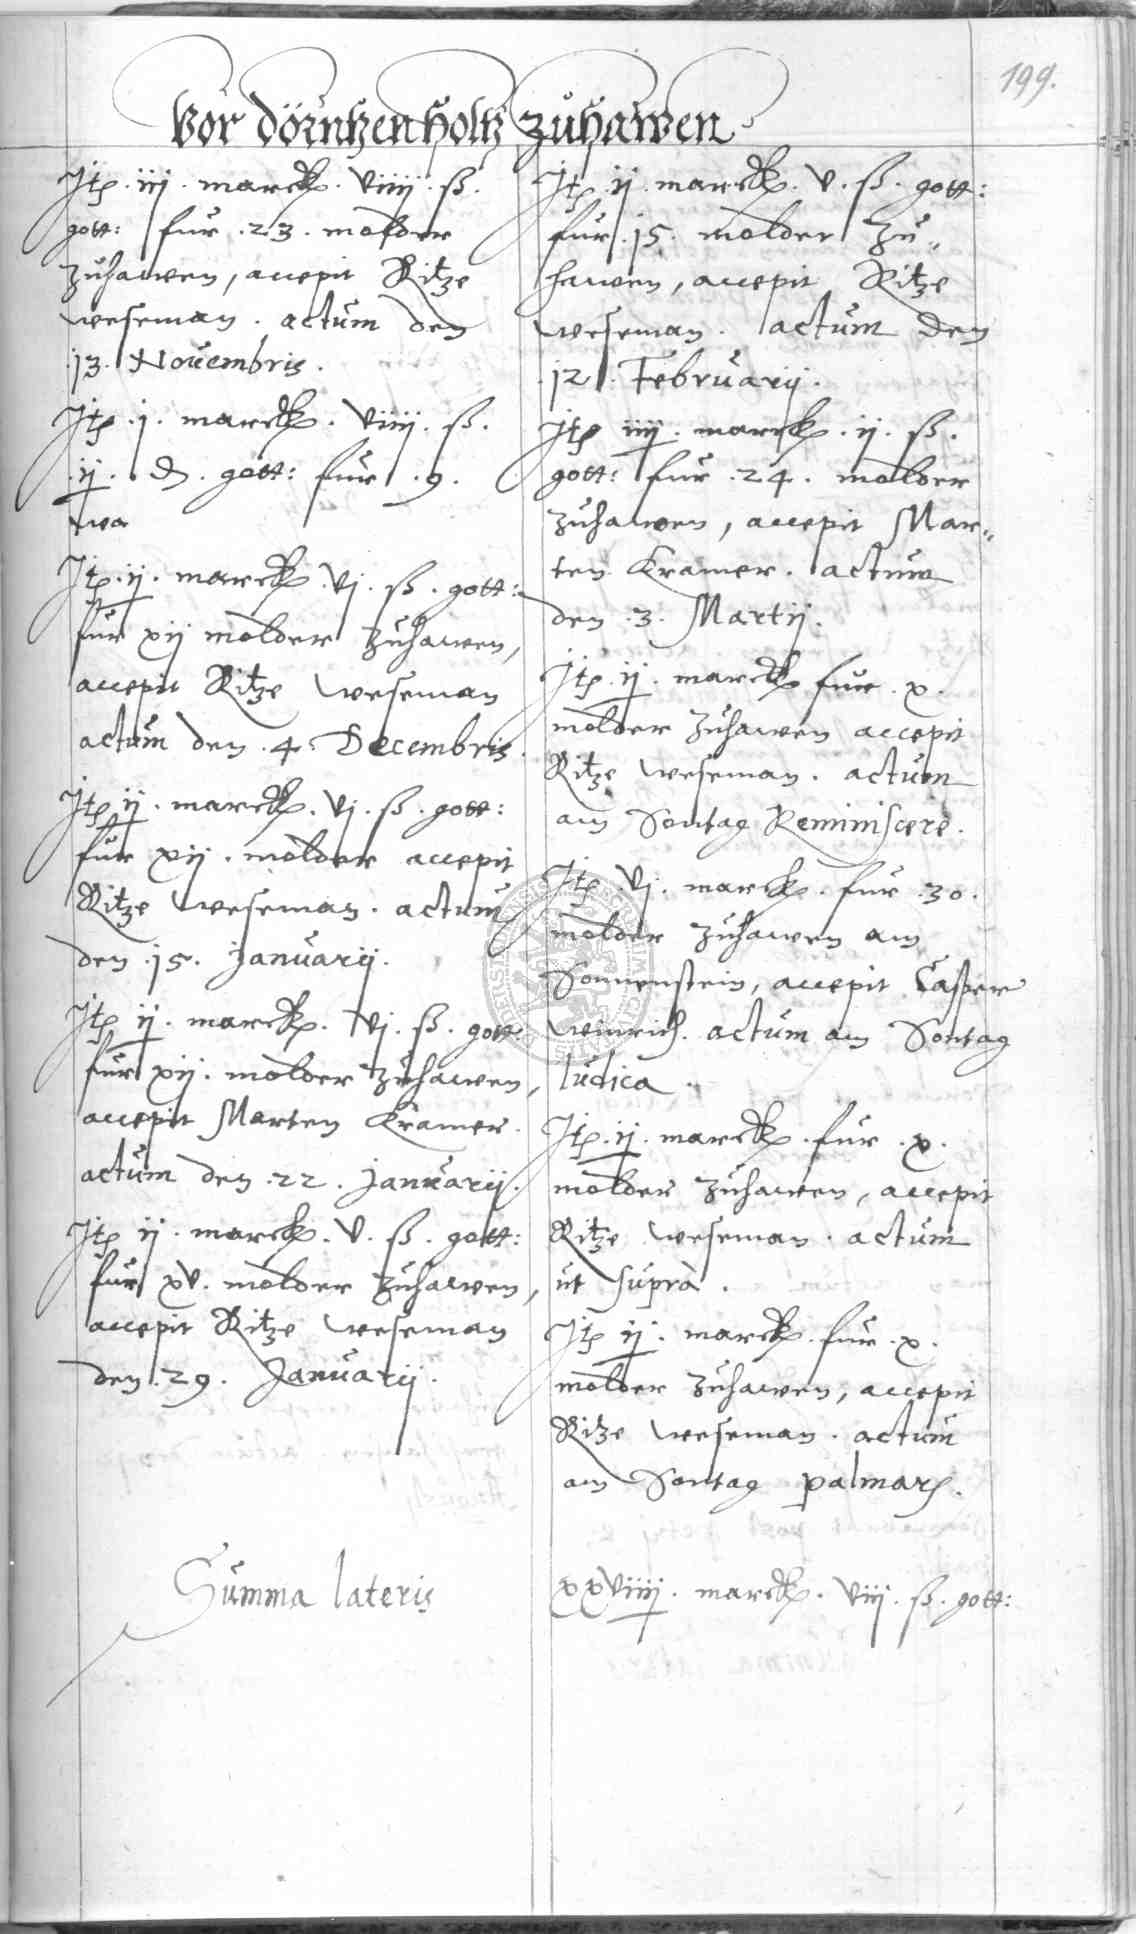 199.
Vor dörntzen holtz zuhawen
Jtẽ .iij. marck. viiij. ß.
gott: fur .23. molder
zuhawen, accepit Ritze
weseman. actum den
.13. Novembris.
Jtẽ .j. marck. viiij. ß.
.ij. ₰. gott: fur .9.
Jtẽ .ij. marck. vj. ß. gott:
fur xij molder zuhawen,
accepit Ritze weseman
actum den .4. Decembris.
Jtẽ ij. marck. vj. ß. gott:
fur xij. molder accepit
Ritze weseman. actum
den .15. Januarij.
Jtẽ ij. marck. vj. ß. gott:
fur xij. molder zuhawen,
accepit Marten Kramer.
actum den .22. Januarij.
Jtẽ ij. marck. v. ß. gott:
fur xv. molder zuhawen,
accepit Ritze weseman
den .29. Januarij.
Jtẽ .ij. marck. v. ß. gott:
fur .15. molder zu„
hawen, accepit Ritze
weseman. actum den
.12. Februarij.
Jtẽ iiij. marck .ij. ß.
gott: fur .24. molder
zuhawen, accepit Mar„
ten Kramer. actum
den .3. Martij.
Jtẽ .ij. marck fur .x.
molder zuhawen accepit
Ritze weseman. actum
am Sontag Reminiscere.
Jtẽ .vj. marck. fur .30.
molder zuhawen am
Sonnenstein, accepit Casper
weinrich. actum am Sontag
Iudica.
Jtẽ .ij. marck. fur .x.
molder zuhawen, accepit
Ritze weseman. actum
ut supra.
Jtẽ ij. marck. fur .x.
molder zuhawen, accepit
Ritze weseman. actum
am Sontag palmarũ.
Summa lateris xxviiij. marck. viij. ß. gott: